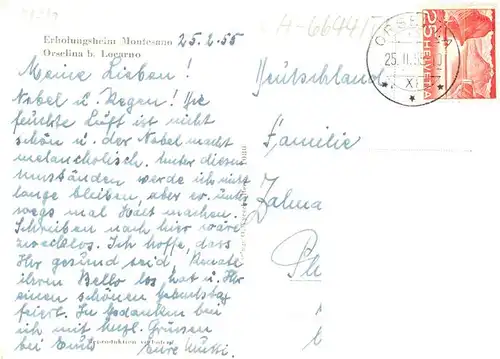 H-6644/T
Erholungsheim Montesano 25.2.55
Orselina b. Locarno
ORSELINA
25.II.55
HELVETIA
25
Meine Lieben!
Nebel u. Regen! Die
feuchte Luft ist nicht
schön u. der Nebel macht
melancholisch. Unter diesen
Umständen werde ich nicht
lange bleiben, aber er. unter
wegs mal Halt machen.
Schreiben nach hier wäre
zwecklos. Ich hoffe, dass
Ihr gesund seid, Renate
ihren Bello los hat u. Ihr
einen schönen Geburtstag
feiert. In Gedanken bei
ich mit herzl. Grüssen
bei Euch Eure Mutti.
Reproduktion verboten
Deutschland
Familie
Zalma